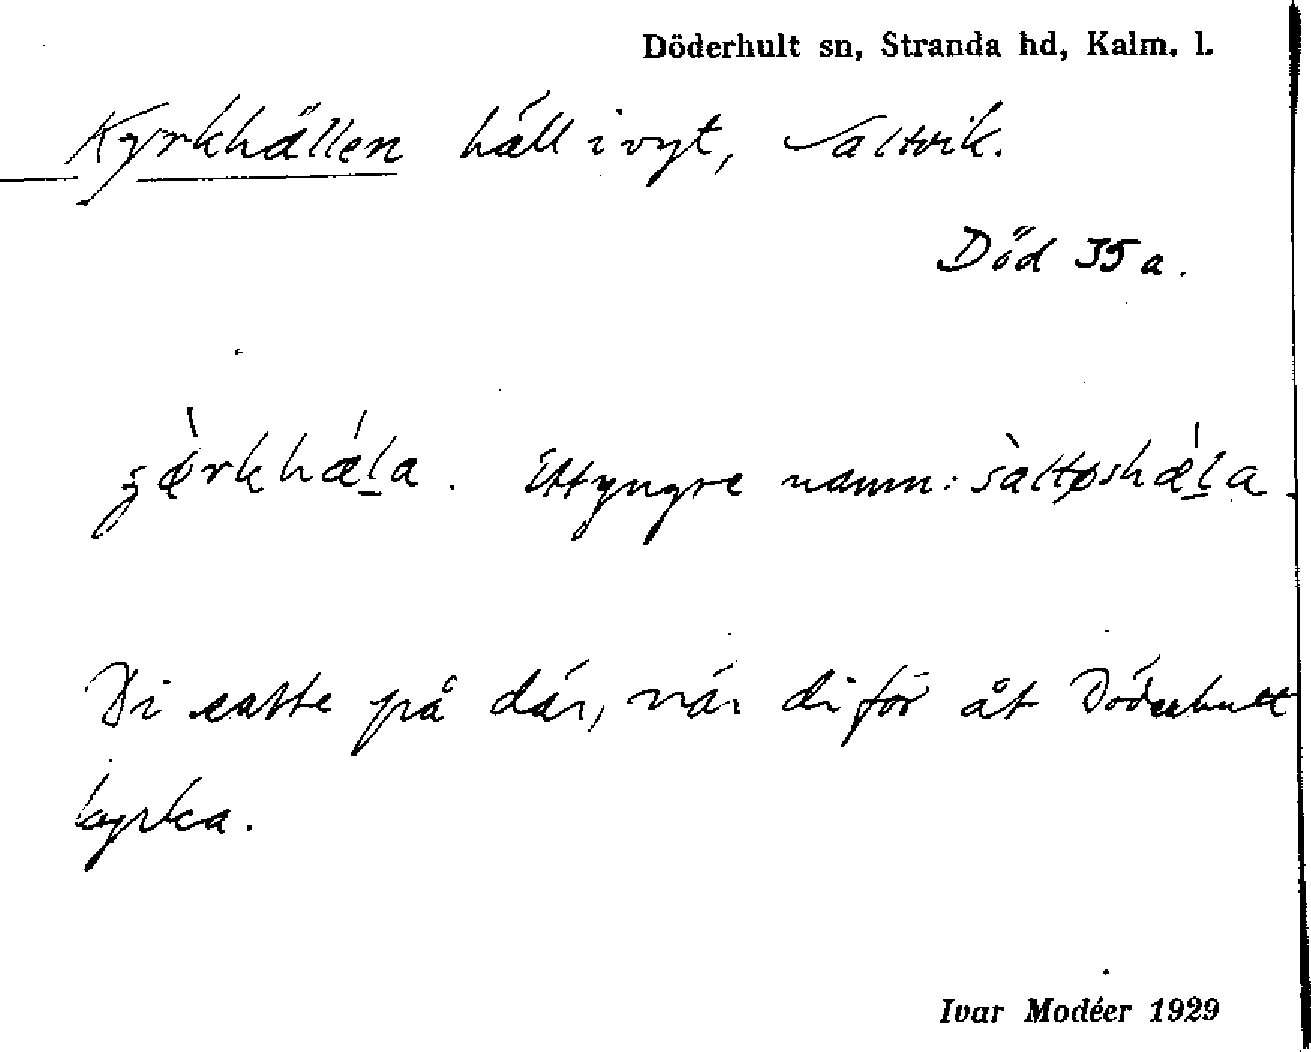 Döderhult sn, Stranda hd, Kalm. l.
Kyrkhällen häll i vyt, Saltvik.
Död 35a.
Ett yngre namn:
Di satte på där, när di för åt Döderhult
kyrka.
Ivar Modéer 1929